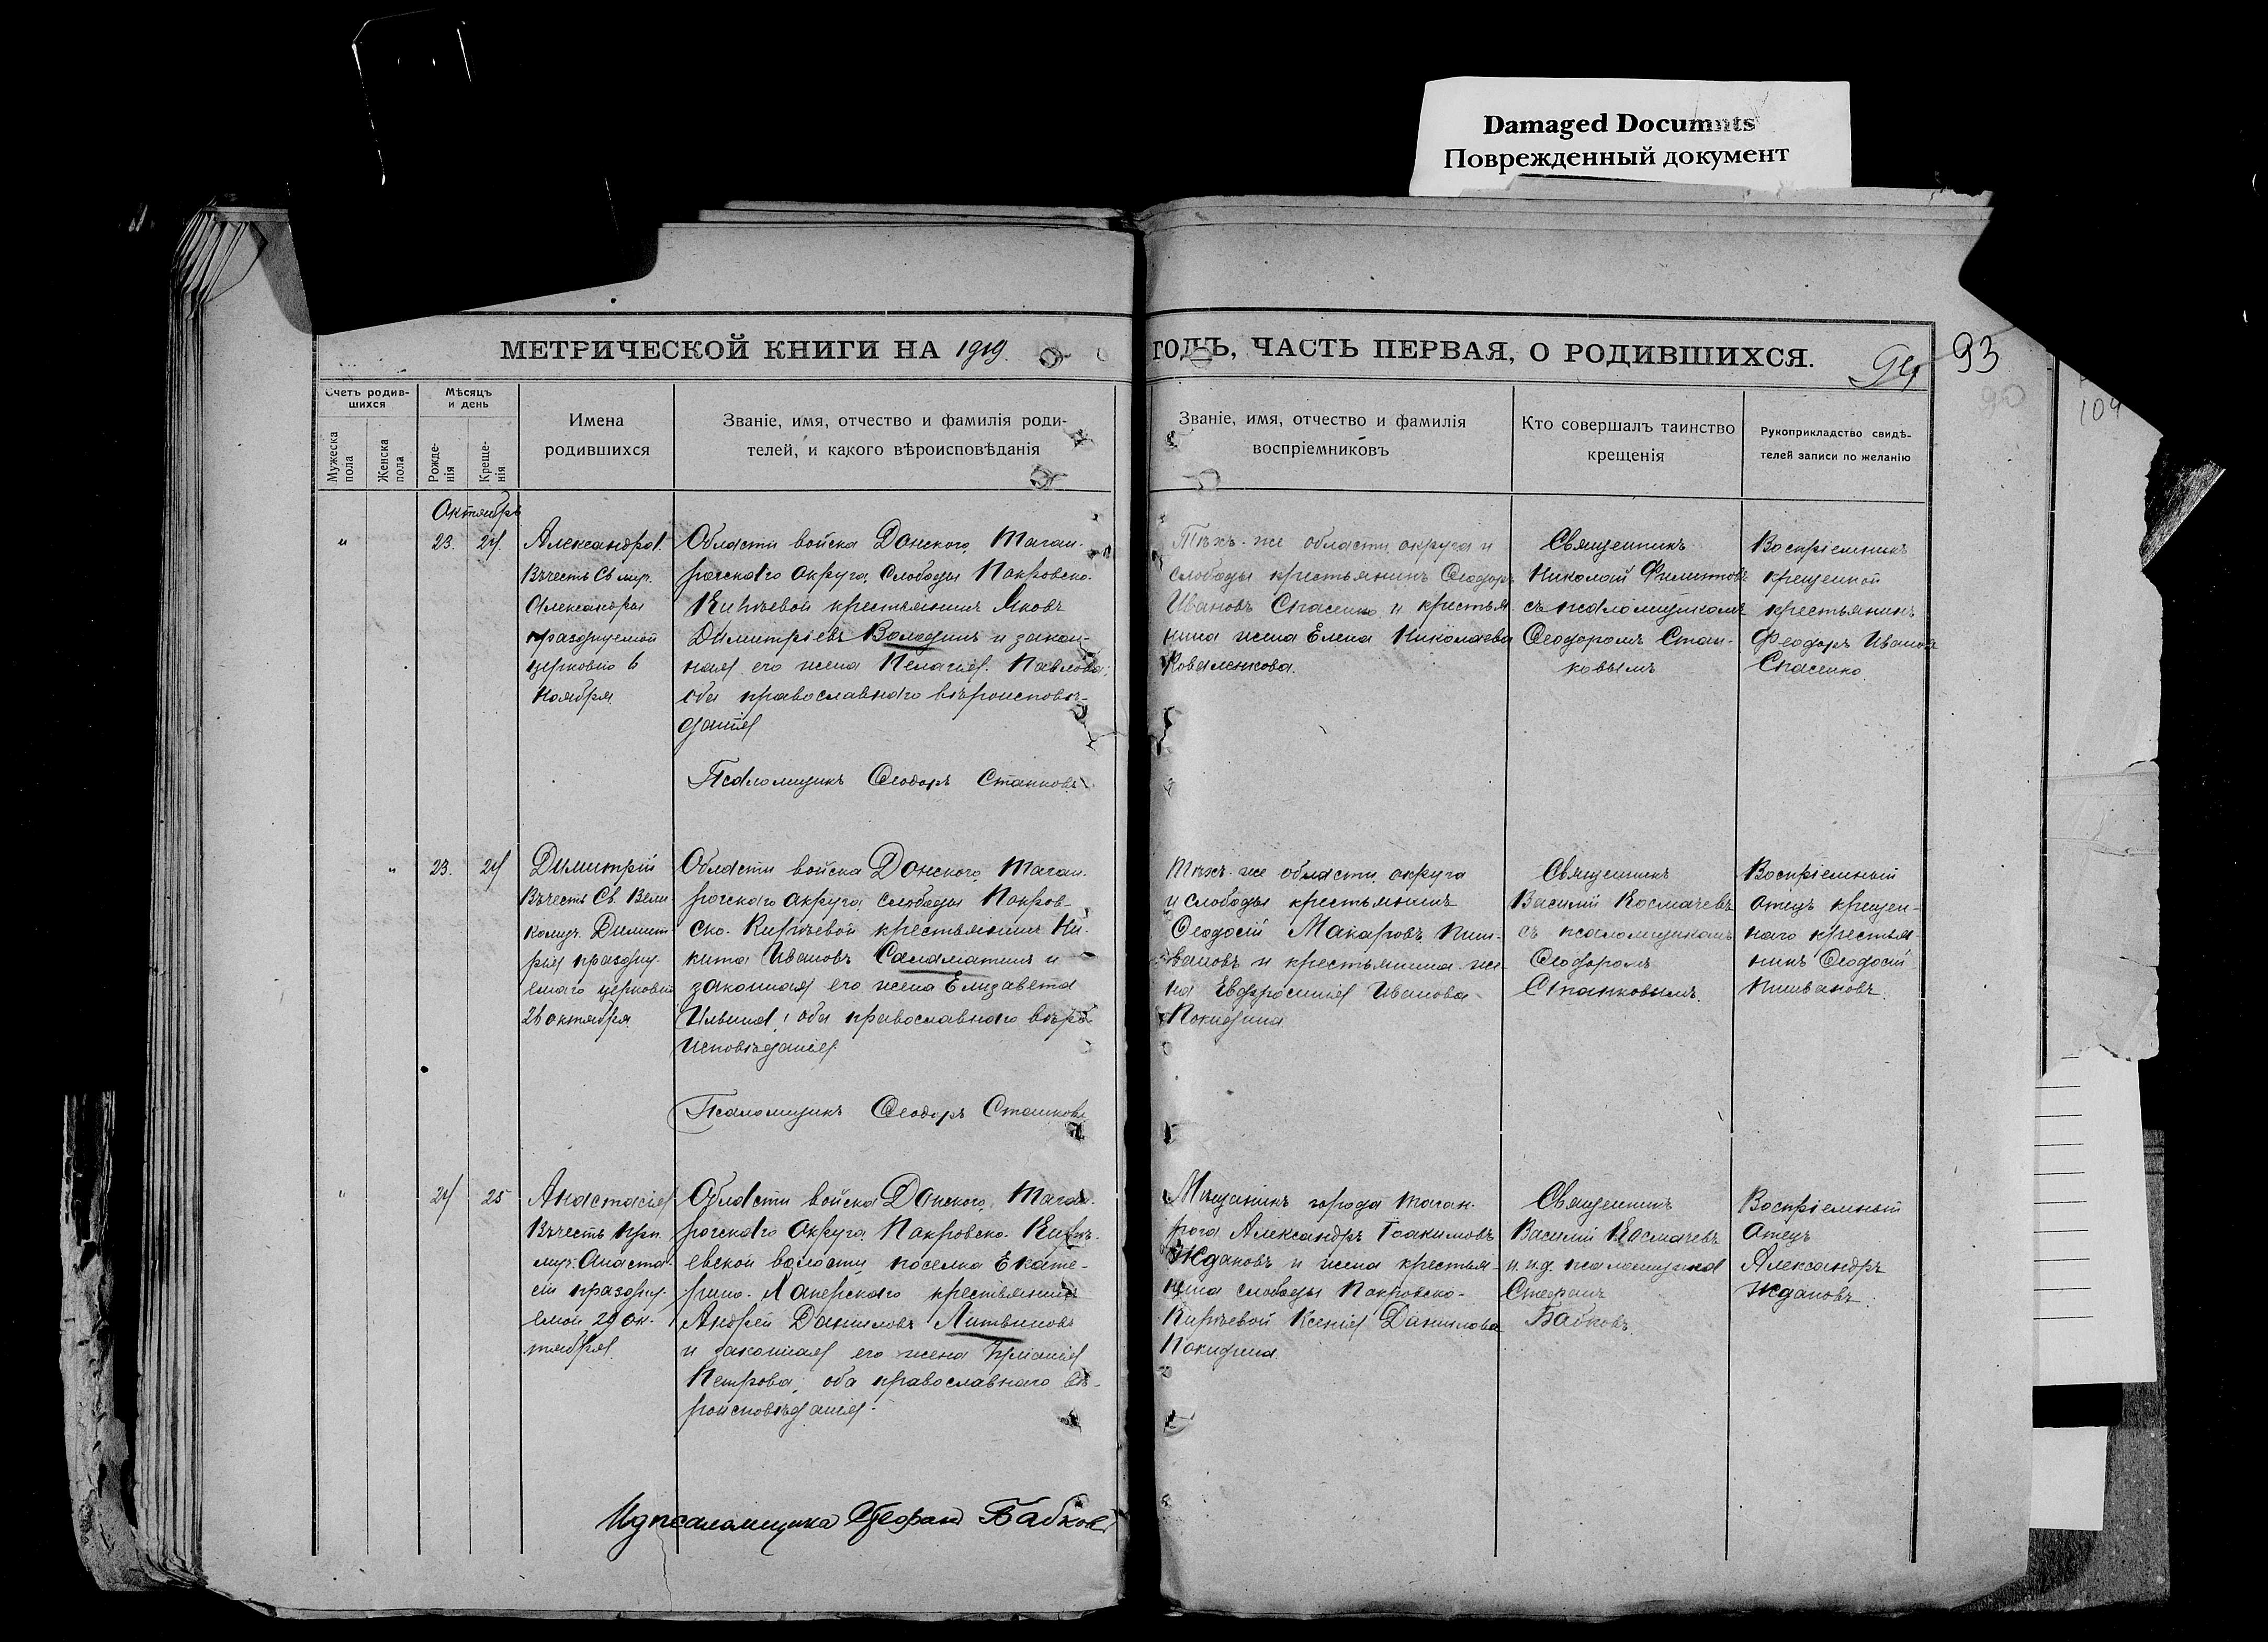 Damaged Documnts
Поврежденный документ
МЕТРИЧЕСКОЙ КНИГИ НА 1919
ГОДЪ, ЧАСТЬ ПЕРВАЯ, О РОДИВШИХСЯ.
94
93
90
104
Счетъ родив-
шихся
Мужеска
пола
Женска
пола
Мѣсяцъ
и день
Рожде-
нія
Креще-
нія
Имена
родившихся
Званіе, имя, отчество и фамилія роди-
телей, и какого вѣроисповѣданія
Званіе, имя, отчество и фамилія
воспріемниковъ
Кто совершалъ таинство
крещенія
Рукоприкладство свидѣ-
телей записи по желанію
Октябрь
"
23.
24.
Александра.
Въ честь Св. мур.
Александры
празднуемой
церковію 6
Ноября.
Области войска Донского, Таган-
рогскаго округа, слободы Покровско-
Кирѣевой крестьянинъ Яковъ
Димитріевъ Володинъ и закон-
ная его жена Пелагія Павлова;
оба православнаго вѣроисповѣ-
данія
Псаломщикъ Ѳеодоръ Станковъ
Тѣхъ-же области, округа и
слободы крестьянинъ Ѳеодоръ
Ивановъ Спасенко и крестьян-
нина жена Елена Николаева
Коваленкова.
Священникъ
Николай Филипповъ
съ псаломщикомъ
Ѳеодоромъ Стан-
ковымъ
Воспріемникъ
крещенной
крестьянинъ
Ѳеодоръ Ивановъ
Спасенко.
"
23.
24
Димитрій
Въ честь Св. Вели
комуч. Димит
рія праздну-
емаго церковію
26 октября.
Области войска Донского, Таган-
рогскаго округа, слободы Покров-
ско-Кирѣевой крестьянинъ Ни-
кита Ивановъ Саламатинъ и
законная его жена Елизавета
Ильина; оба православнаго вѣро-
исповѣданія.
Псаломщикъ Ѳеодоръ Станковъ
Тѣхъ-же области, округа
и слободы крестьянинъ
Ѳеодосій Макаровъ
и крестьянина же-
на Евфросинія Иванова
Покидина
Священникъ
Василій Космачевъ
съ псаломщикомъ
Ѳеодоромъ
Станковымъ.
Воспріемный
отецъ крещен-
наго крестья-
нинъ Ѳеодосій
"
24
25
Анастасія
Въ честь прп.
муч. Анаста-
сіи праздну-
емой 29 ок-
тября.
Области войска Донского, Таган-
рогскаго округа Покровско-Кирѣ-
евской волости поселка Екате-
рино-Хаперскаго крестьянинъ
Андрей Даниловъ Литвиновъ
и законная его жена
Петрова; оба православнаго вѣ-
роисповѣданія.
Ид псаломщика Стефанъ Бабковъ
Мѣщанинъ города Таган-
рога Александръ Іоакимовъ
Ждановъ и жена крестья-
нина слободы Покровско-
Кирѣевой Ксенія Данилова
Покидина.
Священникъ
Василій Космачевъ
и. и.д. псаломщика
Стефанъ
Бабковъ.
Воспріемный
Отецъ
Александръ
Ждановъ.